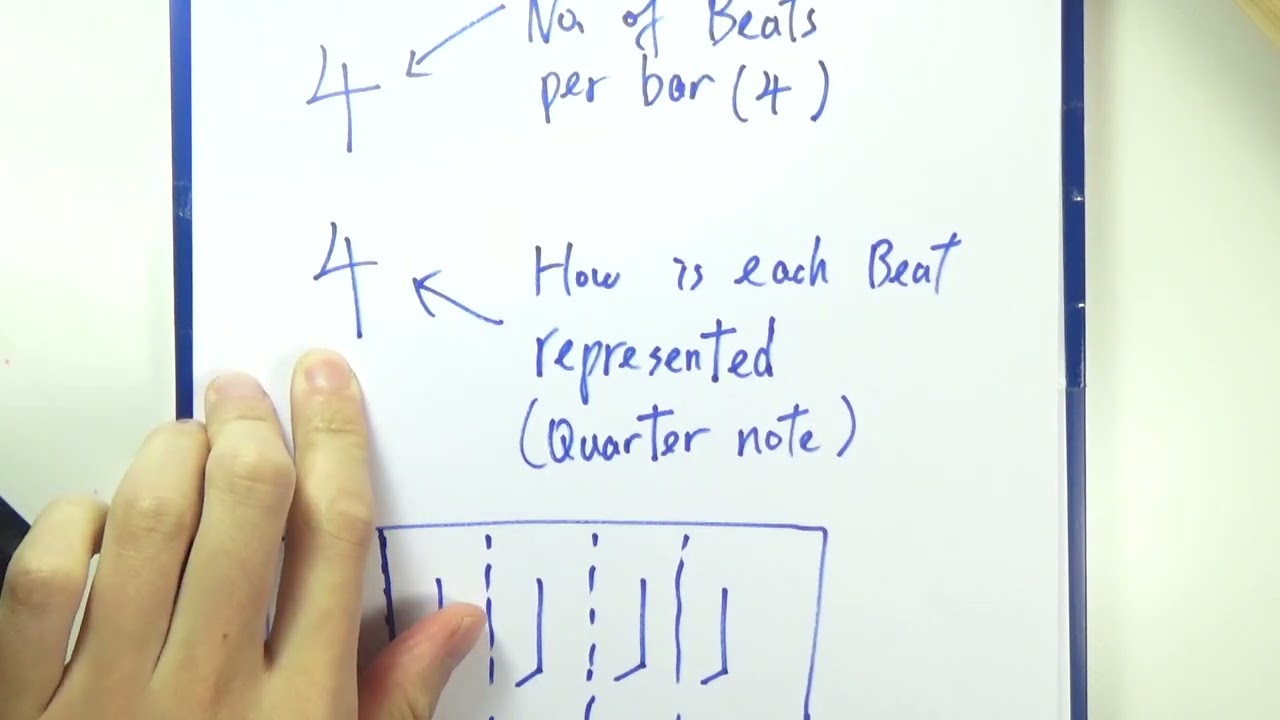 4
No of Beats
per bar (4)
4
How is each Beat
represented
(Quarter note)